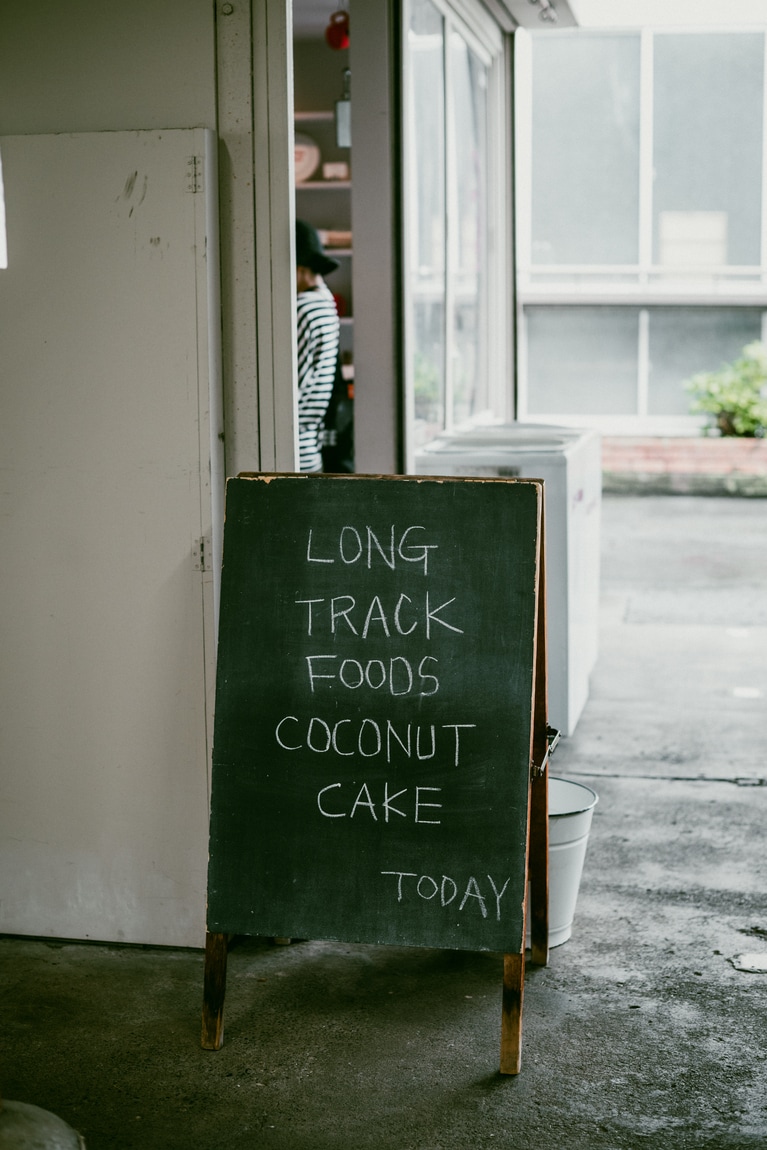 LONG
TRACK
FOODS
COCONUT
CAKE
TODAY